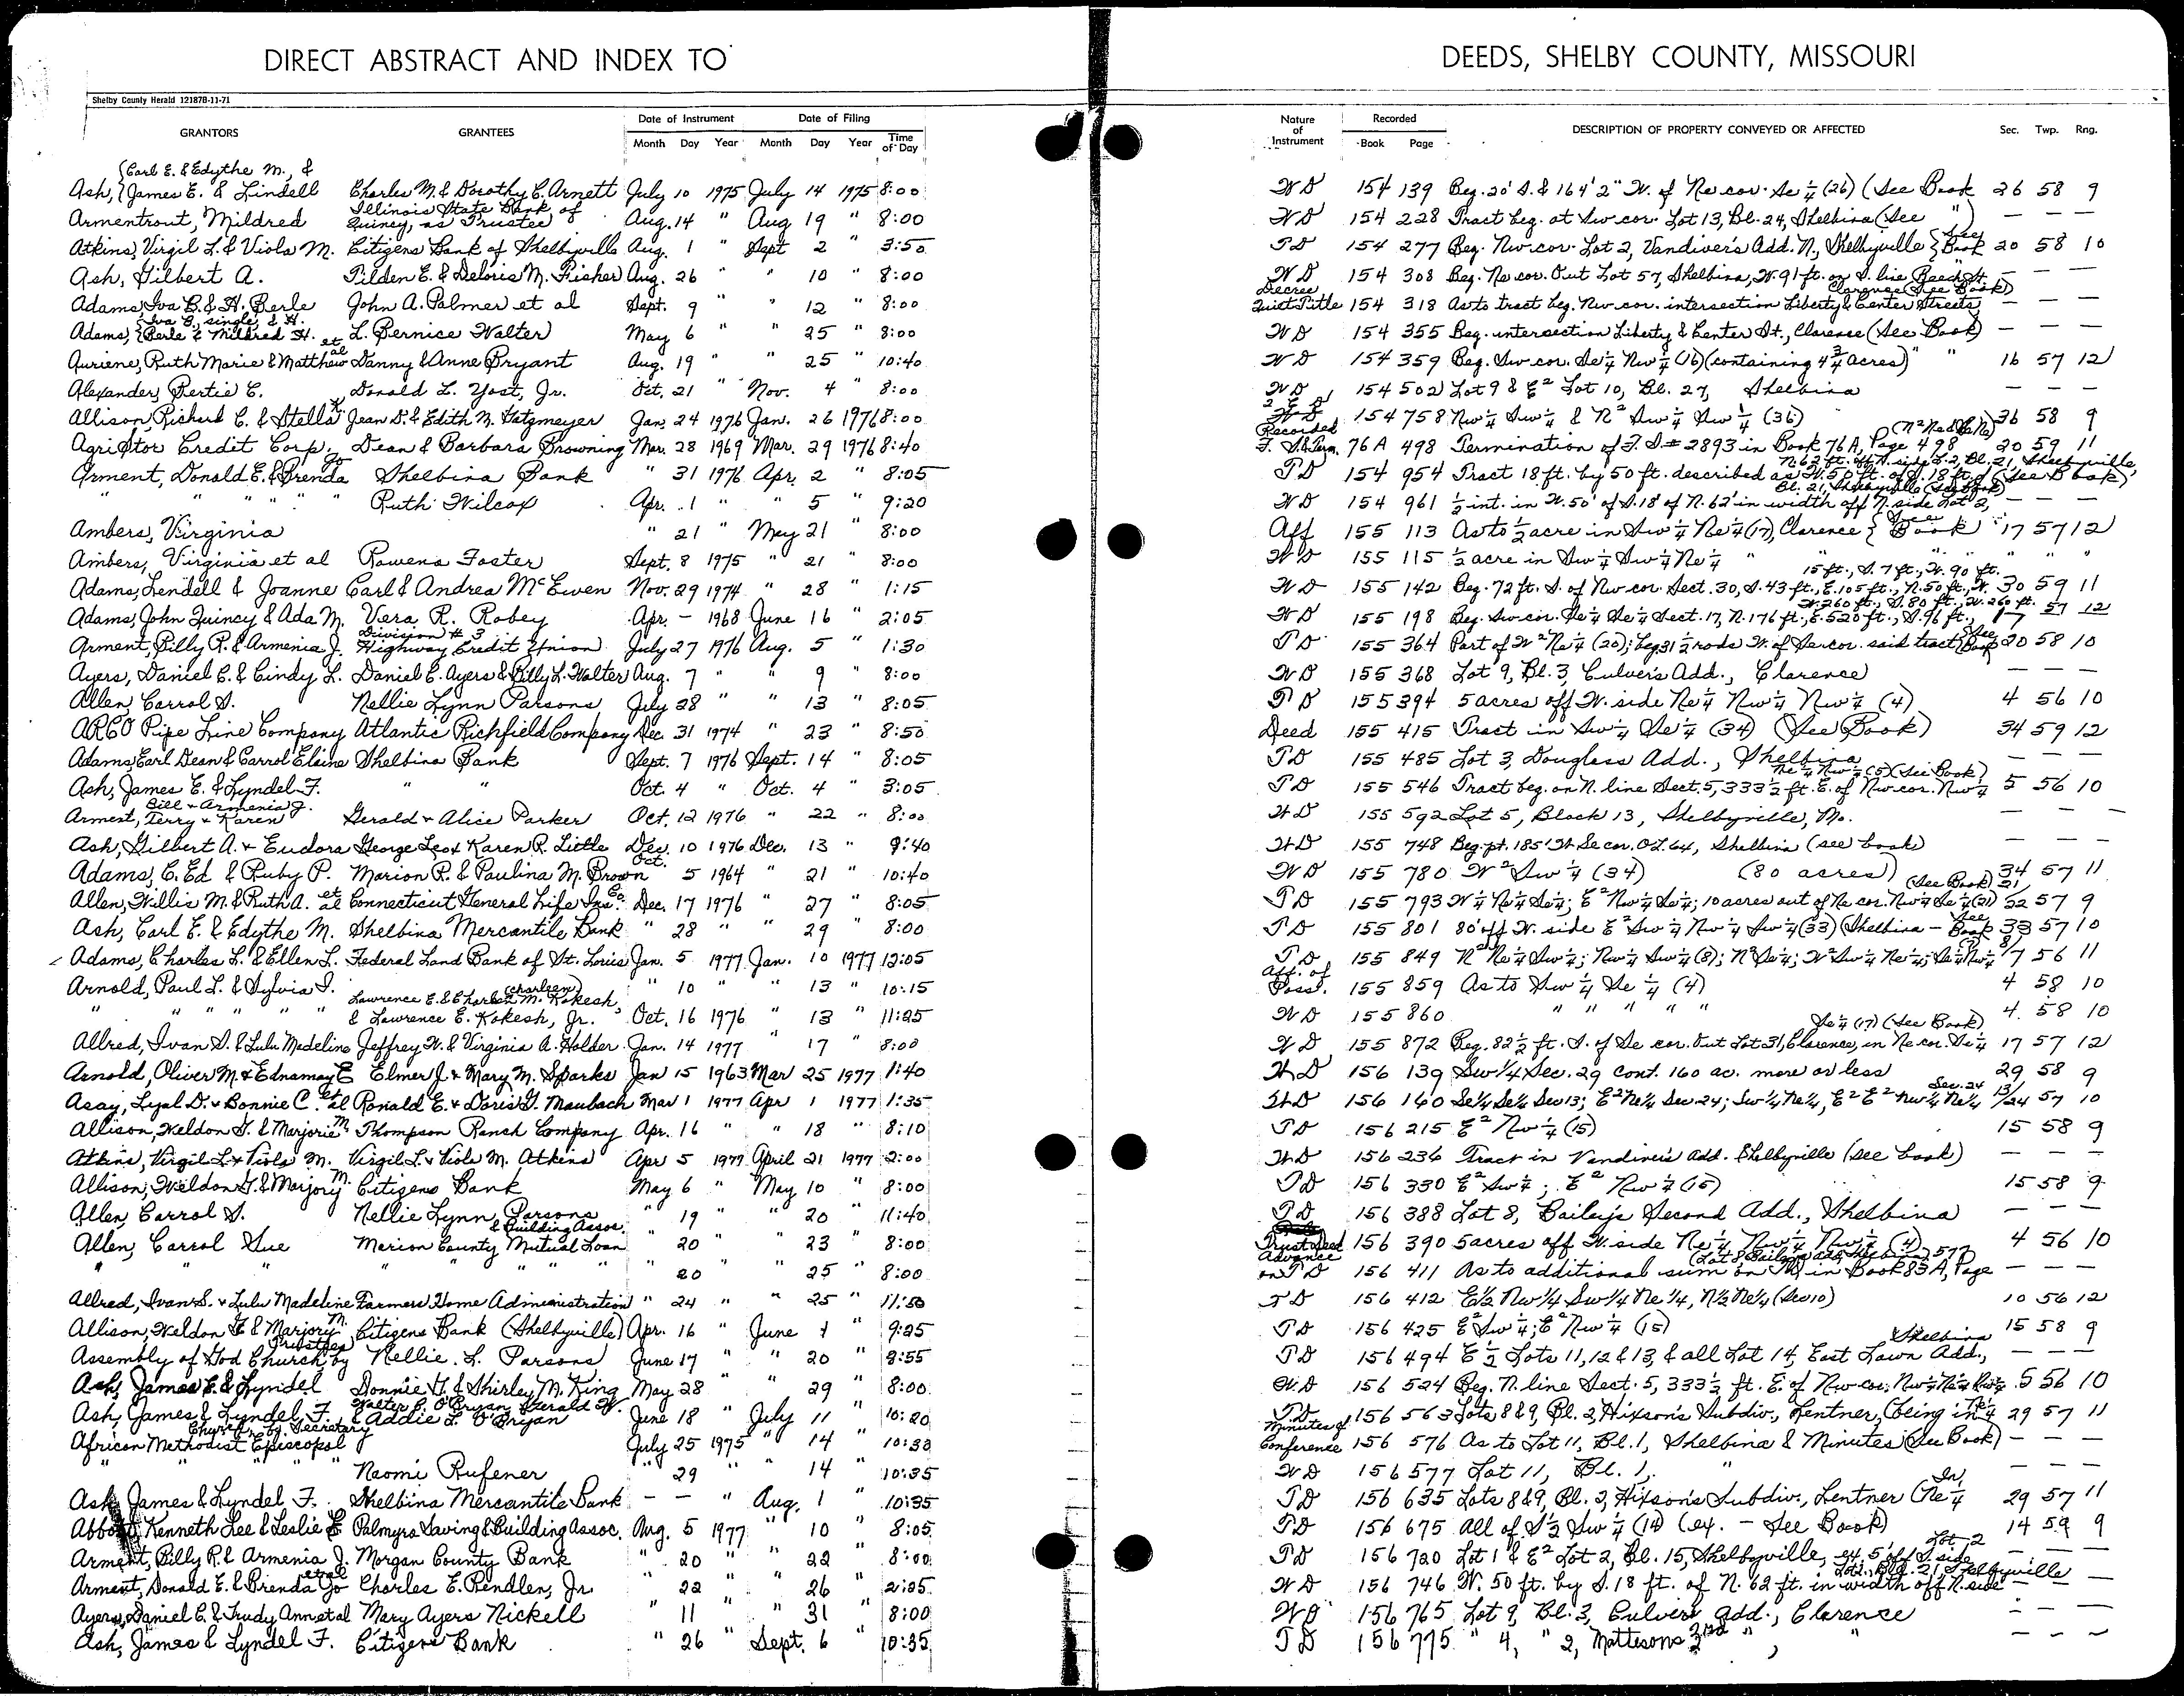 DIRECT ABSTRACT AND INDEX TO DEEDS, SHELBY COUNTY, MISSOURI
Shelby County Herald 12187B-11-71
GRANTORS GRANTEES Date of Instrument Month Day Year Date of Filing Month Day Year Time of Day Nature of Instrument Recorded Book Page DESCRIPTION OF PROPERTY CONVEYED OR AFFECTED Sec. Twp. Rng.
Ash, {Earl E. & Edythe M., & James E. & Lindell Charles M. & Dorothy E. Arnett July 10 1975 July 14 1975 8:00 WD 154 139 Beg. 20' S. & 164' 2" W. of Ne cor. Se ¼ (26) (See Book 26 58 9
Armentrout, Mildred Illinois State Bank of Quincy, as Trustee Aug. 14 " Aug 19 " 8:00 WD 154 228 Tract beg. at Sw cor. Lot 13, Bl. 24, Shelbina (See ") — — —
Atkins, Virgil L. & Viola M. Citizens Bank of Shelbyville Aug. 1 " Sept 2 " 3:50 TD 154 277 Beg. Nw cor. Lot 2, Vandiver's Add. N., Shelbyville {See Book 20 58 10
Ash, Gilbert A. Tilden E. & Deloris M. Fisher Aug. 26 " " 10 " 8:00 WD 154 308 Beg. Ne cor. Out Lot 57, Shelbina, W. 91 ft. on S. line Beech St. — — —
Adams, Iva B. & H. Berle John A. Palmer et al Sept. 9 " " 12 " 8:00 Decree Quiet Title 154 318 As to tract beg. Nw cor. intersection Liberty & Center Streets, Clarence (See Book) — — —
Adams, {Iva B., single, & H. Berle & Mildred H. L. Bernice Walter May 6 " " 25 " 8:00 WD 154 355 Beg. intersection Liberty & Center St., Clarence (See Book) — — —
Auriene, Ruth Marie & Matthew et al Danny & Anne Bryant Aug. 19 " " 25 " 10:40 WD 154 359 Beg. Sw cor. Se ¼ Nw ¼ (16) (containing 4¾ acres) " " 16 57 12
Alexander, Bertie C. Donald L. Yost, Jr. Oct. 21 " Nov. 4 " 8:00 WD 154 502 Lot 9 & E² Lot 10, Bl. 27, Shelbina — — —
Allison, Richard C. & Stella Jean D. & Edith M. Hatzmeyer Jan. 24 1976 Jan. 26 1976 8:00 154 758 Nw ¼ Sw ¼ & N² Sw ¼ Sw ¼ (36) 36 58 9
AgriStor Credit Corp. Dean & Barbara Browning Mar. 28 1969 Mar. 29 1976 8:40 Recorded F. S. & Term. 76A 498 Termination of F. S. # 2893 in Book 76A, Page 498 20 59 11
Arment, Donald E. & Brenda Jo Shelbina Bank " 31 1976 Apr. 2 " 8:05 TD 154 954 Tract 18 ft. by 50 ft. described as W. 50 ft. of S. 18 ft. of N. 62 ft. off N. side L. 2, Bl. 21, Shelbyville, (See Book)
" " " " " Ruth Wilcox Apr. 1 " " 5 " 9:20 WD 154 961 ½ int. in W. 50' of S. 18' of N. 62' in width off N. side Lot 2, Bl. 21, Shelbyville (See Book) — — —
Ambers, Virginia " 21 " May 21 " 8:00 Aff 155 113 As to ½ acre in Sw ¼ Ne ¼ (17), Clarence {See Book 17 57 12
Ambers, Virginia et al Rowena Foster Sept. 8 1975 " 21 " 8:00 WD 155 115 ½ acre in Sw ¼ Sw ¼ Ne ¼ " " " " " "
Adams, Lendell & Joanne Carl & Andrea McEwen Nov. 29 1974 " 28 " 1:15 WD 155 142 Beg. 72 ft. S. of Nw cor. Sect. 30, S. 43 ft., E. 105 ft., N. 50 ft., W. 15 ft., S. 7 ft., W. 90 ft. 30 59 11
Adams, John Quincy & Ada M. Vera R. Robey Apr. — 1968 June 16 " 2:05 WD 155 198 Beg. Sw cor. Se ¼ Se ¼ Sect. 17, N. 176 ft., E. 520 ft., S. 96 ft., W. 260 ft., S. 80 ft., W. 260 ft. 17 57 12
Arment, Billy R. & Armenia J. Division # 3 Highway Credit Union July 27 1976 Aug. 5 " 1:30 TD 155 364 Part of W² Ne ¼ (20); beg 31½ rods W. of Se cor. said tract (See Book 20 58 10
Ayers, Daniel C. & Cindy L. Daniel C. Ayers & Billy L. Walter Aug. 7 " " 9 " 8:00 WD 155 368 Lot 9, Bl. 3, Culver's Add., Clarence — — —
Allen, Carrol S. Nellie Lynn Parsons July 28 " " 13 " 8:05 TD 155 394 5 acres off W. side Ne ¼ Nw ¼ Nw ¼ (4) 4 56 10
ARCO Pipe Line Company Atlantic Richfield Company Dec. 31 1974 " 23 " 8:50 Deed 155 415 Tract in Sw ¼ Se ¼ (34) (See Book) 34 59 12
Adams, Earl Dean & Carrol Elaine Shelbina Bank Sept. 7 1976 Sept. 14 " 8:05 TD 155 485 Lot 3, Douglass Add., Shelbina — — —
Ash, James E. & Lyndel F. " " Oct. 4 " Oct. 4 " 3:05 TD 155 546 Tract beg. on N. line Sect. 5, 333½ ft. E. of Nw cor. Nw ¼ Ne ¼ Nw ¼ (5) (See Book) 5 56 10
Arment, Bill & Armenia J. Terry & Karen Gerald & Alice Parker Oct. 12 1976 " 22 " 8:00 WD 155 592 Lot 5, Block 13, Shelbyville, Mo. — — —
Ash, Gilbert A. & Eudora George Leo & Karen R. Little Dec. 10 1976 Dec. 13 " 9:40 WD 155 748 Beg. pt. 185' W. Se cor. OL 64, Shelbina (see book) — — —
Adams, C. Ed & Ruby P. Marion R. & Paulina M. Brown Oct. 5 1964 " 21 " 10:40 WD 155 780 W² Sw ¼ (34) (80 acres) 34 57 11
Allen, Willis M. & Ruth A. et al Connecticut General Life Ins. Co. Dec. 17 1976 " 27 " 8:05 TD 155 793 W ½ Ne ¼ Se ¼; E² Nw ¼ Se ¼; 10 acres out of Ne cor. Nw ¼ Se ¼ (21) (See Book) 21 22 57 9
Ash, Earl E. & Edythe M. Shelbina Mercantile Bank " 28 " " 29 " 8:00 TD 155 801 80' off W. side E² Sw ¼ Nw ¼ Sw ¼ (33) (Shelbina — See Book 33 57 10
Adams, Charles L. & Ellen L. Federal Land Bank of St. Louis Jan. 5 1977 Jan. 10 1977 12:05 TD 155 849 N² Ne ¼ Sw ¼; Nw ¼ Sw ¼ (8); N² Se ¼; W² Sw ¼ Ne ¼; Se ¼ Nw ¼ (7) 8/7 56 11
Arnold, Paul L. & Sylvia I. " 10 " " 13 " 10:15 Aff. of Poss. 155 859 As to Sw ¼ Se ¼ (4) 4 58 10
" " " " " Lawrence E. & Charleen M. Kokesh (Charleen) & Lawrence E. Kokesh, Jr. Oct. 16 1976 " 13 " 11:25 WD 155 860 " " " " " 4 58 10
Allred, Ivan S. & Lulu Madeline Jeffrey W. & Virginia A. Holder Jan. 14 1977 " 17 " 8:00 WD 155 872 Beg. 82½ ft. S. of Se cor. Out Lot 31, Clarence, in Ne cor. Se ¼ Se ¼ (17) (See Book) 17 57 12
Arnold, Oliver M. & Ednamay E Elmer J. & Mary M. Sparks Jan 15 1963 Mar 25 1977 1:40 WD 156 139 Sw ¼ Sec. 29 cont. 160 ac. more or less 29 58 9
Asay, Lyal D. & Bonnie C. et al Ronald E. & Doris G. Maubach Mar 1 1977 Apr 1 1977 1:35 WD 156 160 Se ¼ Se ¼ Sec 13; E² Ne ¼ Sec 24; Sw ¼ Ne ¼, E² E² Nw ¼ Ne ¼ Sec. 24 13/24 57 10
Allison, Weldon G. & Marjorie M. Thompson Ranch Company Apr. 16 " " 18 " 8:10 TD 156 215 E² Nw ¼ (15) 15 58 9
Atkins, Virgil L. & Viola M. Virgil L. & Viola M. Atkins Apr 5 1977 April 21 1977 2:00 WD 156 236 Tract in Vandiver's Add. Shelbyville (see book) — — —
Allison, Weldon G. & Marjory M. Citizens Bank May 6 " May 10 " 8:00 TD 156 330 E² Sw ¼; E² Nw ¼ (15) 15 58 9
Allen, Carrol S. Nellie Lynn Parsons " 19 " " 20 " 11:40 TD 156 388 Lot 8, Bailey's Second Add., Shelbina — — —
Allen, Carrol Sue Marion County Mutual Loan & Building Assoc. " 20 " " 23 " 8:00 Trust Deed 156 390 5 acres off W. side Ne ¼ Nw ¼ Nw ¼ (4) 4 56 10
" " " " " 20 " 25 " 8:00 Advance on TD 156 411 As to additional sum on TD in Book 83A, Page 577 (Lot 8 Bailey's Add., Shelbina) — — —
Allred, Ivan S. & Lulu Madeline Farmers Home Administration " 24 " " 25 " 11:50 TD 156 412 E½ Nw ¼ Sw ¼ Ne ¼, N½ Ne ¼ (Sec 10) 10 56 12
Allison, Weldon G. & Marjory M. Citizens Bank (Shelbyville) Apr. 16 " June 1 " 9:25 TD 156 425 E² Sw ¼; E² Nw ¼ (15) 15 58 9
Assembly of God Church, by Trustees Nellie L. Parsons June 17 " " 20 " 8:55 TD 156 494 E ½ Lots 11, 12 & 13, & all Lot 14, East Lawn Add., Shelbina — — —
Ash, James E. & Lyndel Donnie G. & Shirley M. King May 28 " " 29 " 8:00 WD 156 524 Beg. N. line Sect. 5, 333½ ft. E. of Nw cor. Nw ¼ Ne ¼ Nw ¼ 5 56 10
Ash, James & Lyndel F. Walter C. O'Bryan, Gerald W. & Addie L. O'Bryan June 18 " July 11 " 10:20 TD 156 563 Lots 8 & 9, Bl. 2, Hixson's Subdiv., Lentner, (being in Ne ¼ 29 57 11
African Methodist Episcopal Church, by Secretary July 25 1975 " 14 " 10:30 Minutes of Conference 156 576 As to Lot 11, Bl. 1, Shelbina & Minutes (See Book) — — —
" " " " Naomi Rufener " 29 " " 14 " 10:35 WD 156 577 Lot 11, Bl. 1, " — — —
Ash, James & Lyndel F. Shelbina Mercantile Bank — — " Aug. 1 " 10:35 TD 156 635 Lots 8 & 9, Bl. 2, Hixson's Subdiv., Lentner (In Ne ¼ 29 57 11
Abbott, Kenneth Lee & Leslie E Palmyra Saving & Building Assoc. Aug. 5 1977 " 10 " 8:05 TD 156 675 All of S½ Sw ¼ (14) (ex. — See Book) 14 59 9
Arment, Billy R. & Armenia J. Morgan County Bank " 20 " " 22 " 8:00 TD 156 720 Lot 1 & E² Lot 2, Bl. 15, Shelbyville, ex. 5' off S. side Lot 2 — — —
Arment, Donald E. & Brenda Jo et al Charles E. Rendlen, Jr. " 22 " " 26 " 2:05 WD 156 746 W. 50 ft. by S. 18 ft. of N. 62 ft. in width off N. side Lot 2, Bl. 21, Shelbyville — — —
Ayers, Daniel C. & Trudy Ann et al Mary Ayers Nickell " 11 " " 31 " 8:00 WD 156 765 Lot 9, Bl. 3, Culvers Add., Clarence — — —
Ash, James & Lyndel F. Citizens Bank " 26 " Sept. 6 " 10:35 TD 156 775 " 4, " 2, Mattesons 2nd " , " — — —